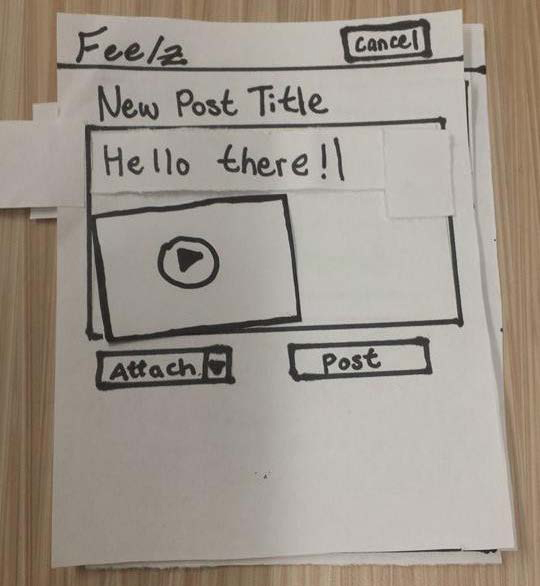 Feelz
Cancel
New Post Title
Hello there!|
Attach
Post